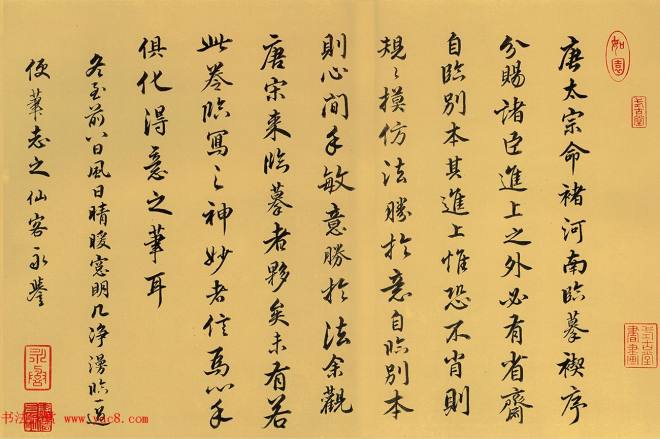 如園
式古堂
式古堂書畫
唐太宗命褚河南臨摹禊序
分賜諸臣進上之外必有省齋
自臨別本其進上惟恐不肖則
規〻摸仿法勝於意自臨別本
則心閒手敏意勝於法余觀
唐宋來臨摹者夥矣未有若
此卷臨寫之神妙者信焉心手
俱化得意之筆耳
冬至前八日風日晴暖窓明几净漫臨一過
便筆志之仙客永譽
永譽
书法欣赏 www.yac8.com